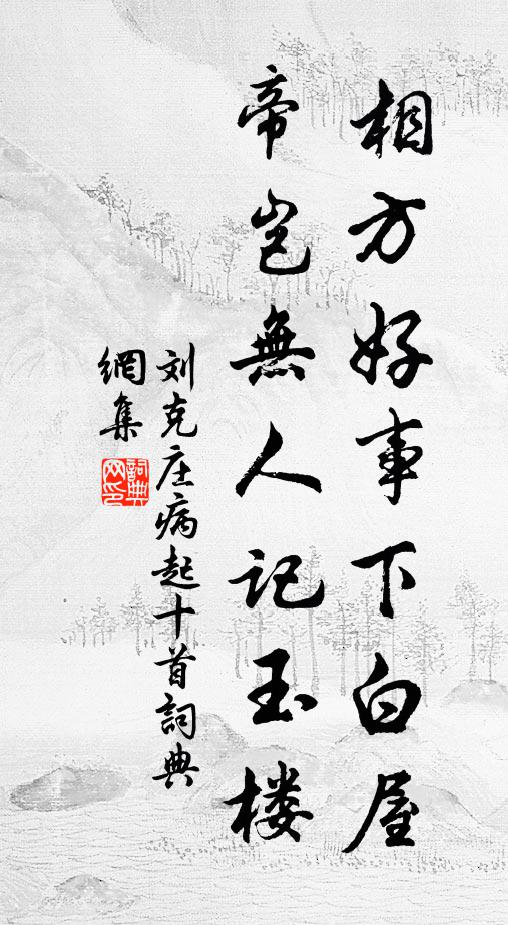 相方好事下白屋
帝岂無人记玉楼
刘克庄病起十首詞典
網集
詞典
网印